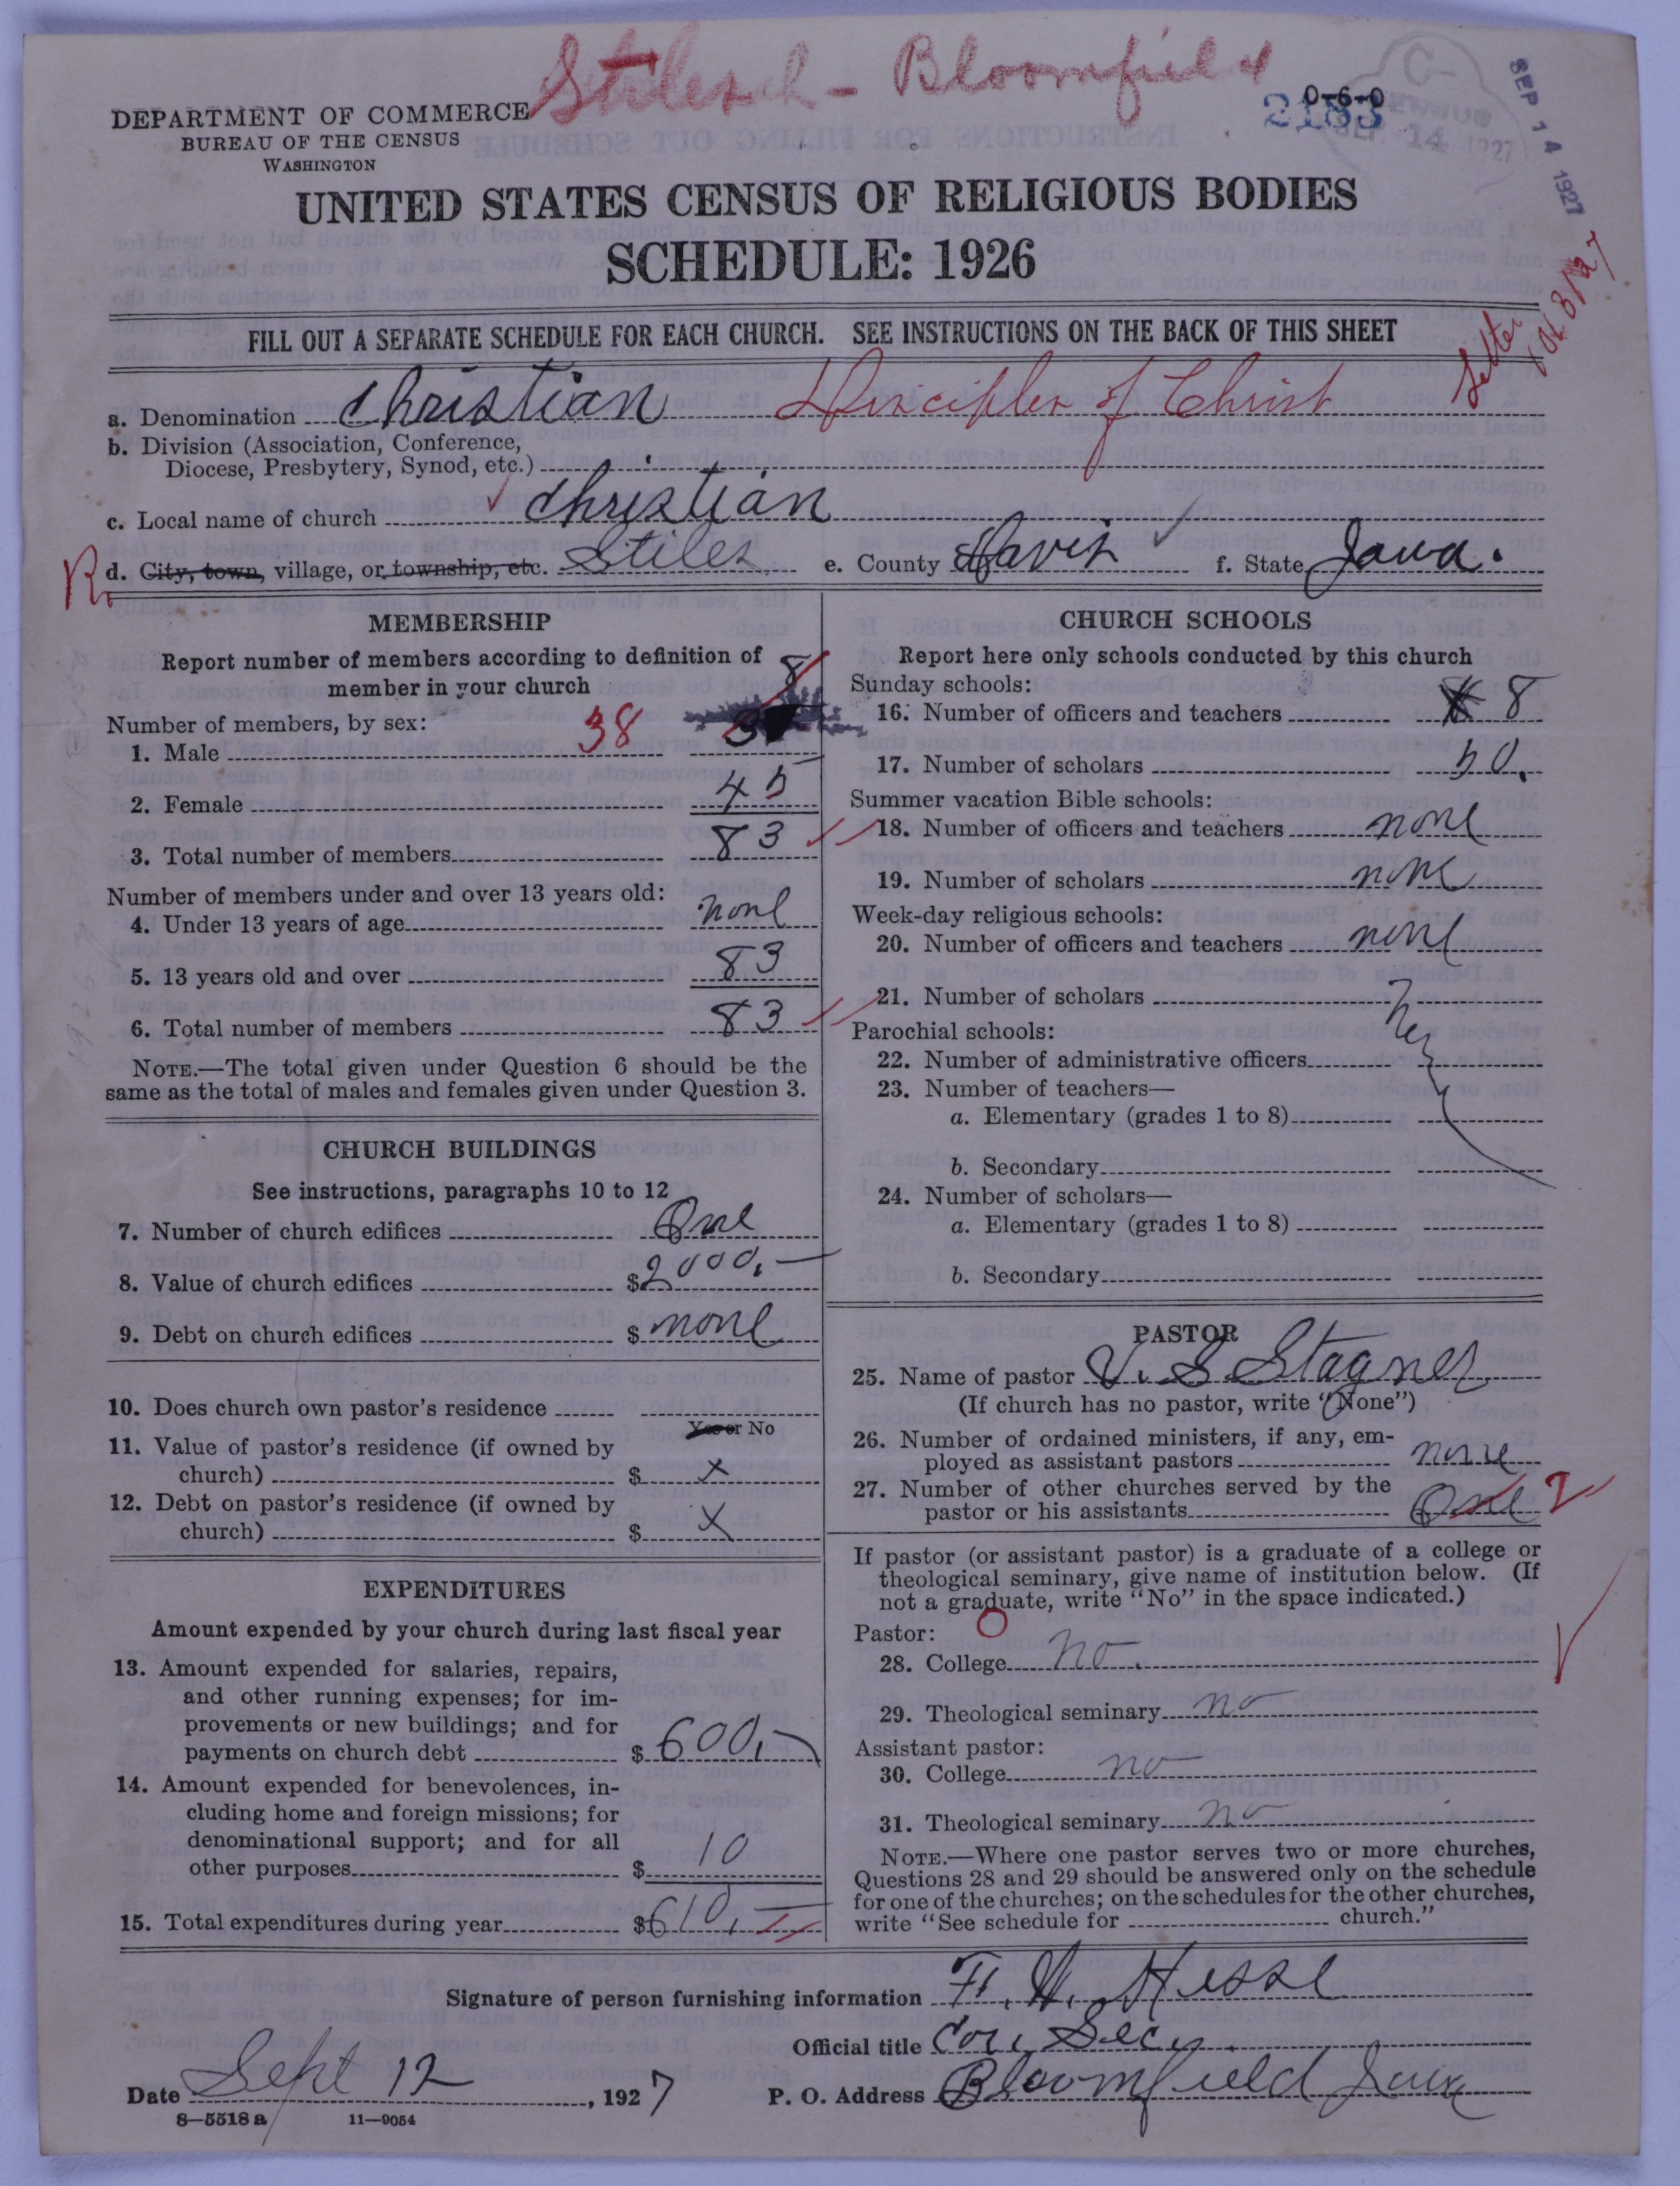 Stiles - Bloomfield
DEPARTMENT OF COMMERCE
BUREAU OF THE CENSUS
WASHINGTON
0-6-0
2183
SEP 14 1927
SEP 14 1927
UNITED STATES CENSUS OF RELIGIOUS BODIES
SCHEDULE: 1926
FILL OUT A SEPARATE SCHEDULE FOR EACH CHURCH. SEE INSTRUCTIONS ON THE BACK OF THIS SHEET
Letter
a. Denomination Christian Disciples of Christ
b. Division (Association, Conference,
Diocese, Presbytery, Synod, etc.)
c. Local name of church Christian
R. d. City, town, village, or township, etc. Stiles e. County Davis f. State Iowa.
MEMBERSHIP
Report number of members according to definition of
member in your church
Number of members, by sex:
8
1. Male 38 3
2. Female 45
3. Total number of members 83
Number of members under and over 13 years old:
4. Under 13 years of age none
5. 13 years old and over 83
6. Total number of members 83
NOTE.—The total given under Question 6 should be the
same as the total of males and females given under Question 3.
CHURCH BUILDINGS
See instructions, paragraphs 10 to 12
7. Number of church edifices One
8. Value of church edifices $2000.—
9. Debt on church edifices $ none
10. Does church own pastor's residence
Yes or No
11. Value of pastor's residence (if owned by
church) $ x
12. Debt on pastor's residence (if owned by
church) $ x
EXPENDITURES
Amount expended by your church during last fiscal year
13. Amount expended for salaries, repairs,
and other running expenses; for im-
provements or new buildings; and for
payments on church debt $ 600.—
14. Amount expended for benevolences, in-
cluding home and foreign missions; for
denominational support; and for all
other purposes $ 10
15. Total expenditures during year $610.—
CHURCH SCHOOLS
Report here only schools conducted by this church
Sunday schools:
16. Number of officers and teachers 8
17. Number of scholars 50.
Summer vacation Bible schools:
18. Number of officers and teachers none
19. Number of scholars none
Week-day religious schools:
20. Number of officers and teachers none
21. Number of scholars
Parochial schools:
22. Number of administrative officers
23. Number of teachers—
a. Elementary (grades 1 to 8)
b. Secondary
24. Number of scholars—
a. Elementary (grades 1 to 8)
b. Secondary
PASTOR
25. Name of pastor V. S Stagner
(If church has no pastor, write "None")
26. Number of ordained ministers, if any, em-
ployed as assistant pastors none
27. Number of other churches served by the
pastor or his assistants One 2
If pastor (or assistant pastor) is a graduate of a college or
theological seminary, give name of institution below. (If
not a graduate, write "No" in the space indicated.)
Pastor:
28. College no.
29. Theological seminary no
Assistant pastor:
30. College no
31. Theological seminary no
NOTE.—Where one pastor serves two or more churches,
Questions 28 and 29 should be answered only on the schedule
for one of the churches; on the schedules for the other churches,
write "See schedule for church."
Signature of person furnishing information F. W. Hesse
Official title Cor. Secy.
Date Sept 12, 1927 P. O. Address Bloomfield Iowa
8—5518 a 11—9054